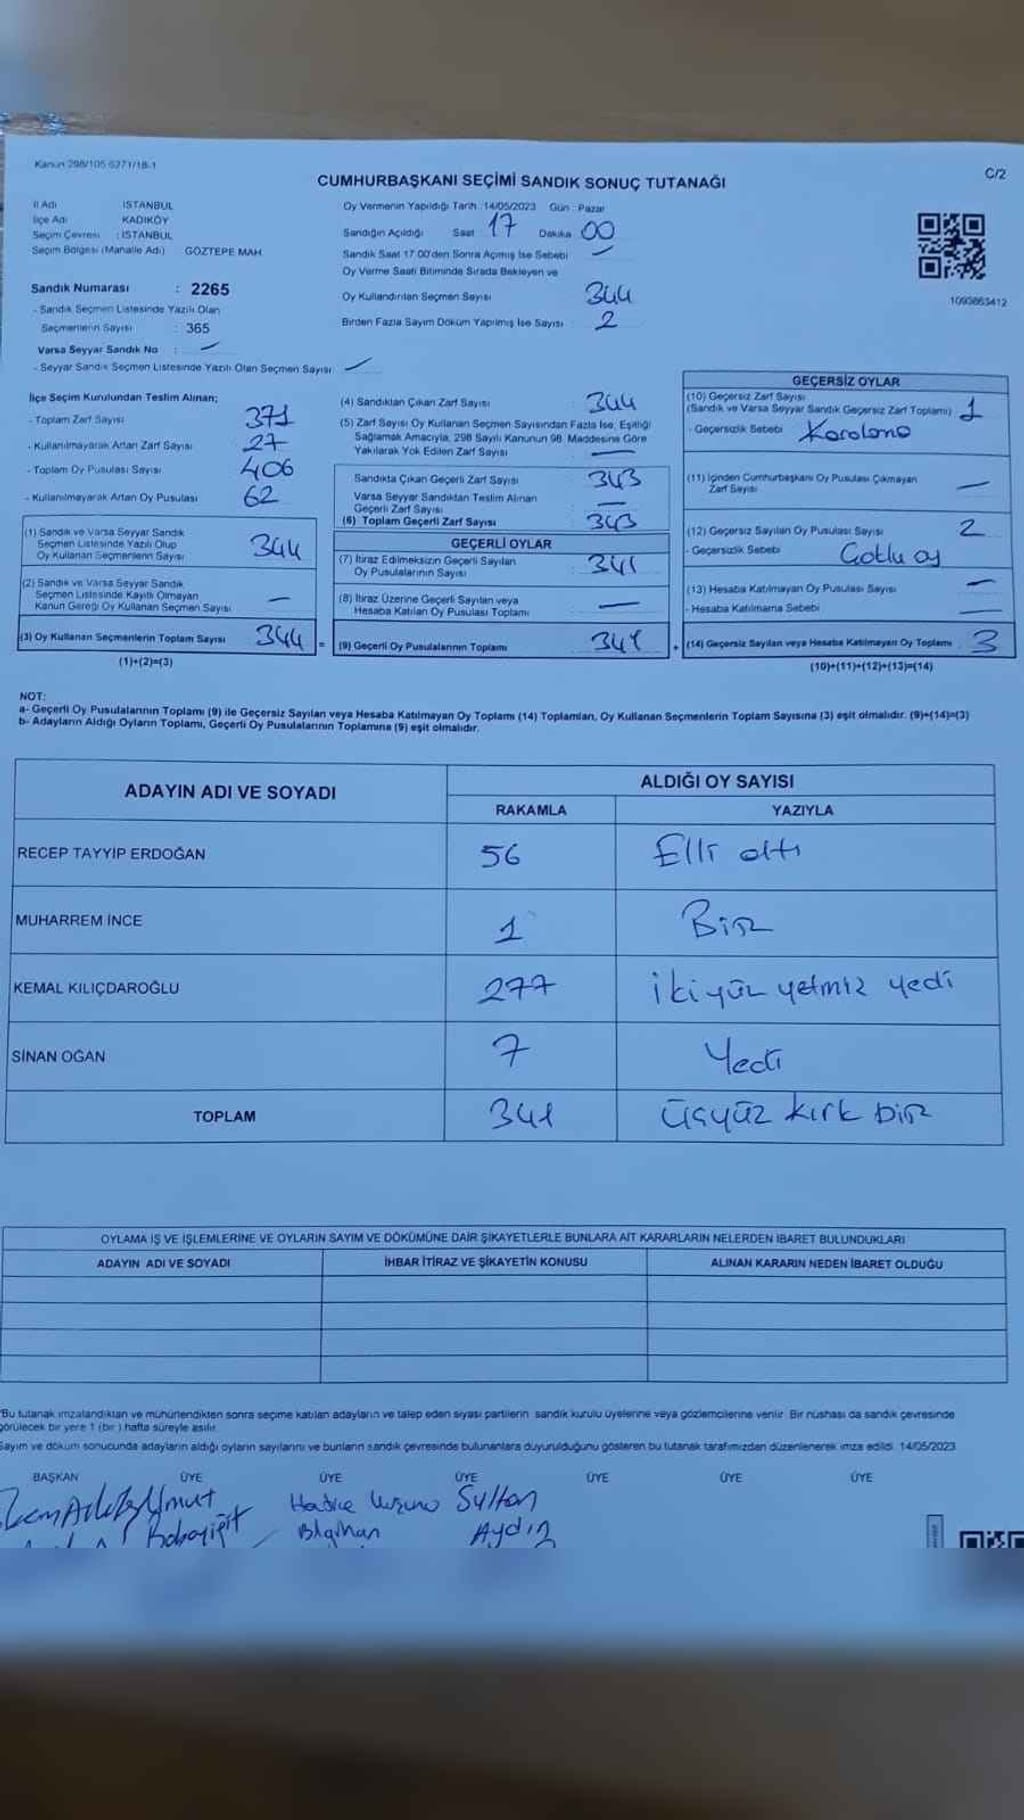 Kanun 298/105 6271/18-1
C/2
CUMHURBAŞKANI SEÇİMİ SANDIK SONUÇ TUTANAĞI
İl Adı : İSTANBUL
İlçe Adı : KADIKÖY
Seçim Çevresi : İSTANBUL
Seçim Bölgesi (Mahalle Adı) GÖZTEPE MAH
Sandık Numarası : 2265
- Sandık Seçmen Listesinde Yazılı Olan
Seçmenlerin Sayısı : 365
Varsa Seyyar Sandık No : -
- Seyyar Sandık Seçmen Listesinde Yazılı Olan Seçmen Sayısı -
Oy Vermenin Yapıldığı Tarih : 14/05/2023 Gün : Pazar
Sandığın Açıldığı Saat 17 Dakika 00
Sandık Saat 17:00'den Sonra Açılmış İse Sebebi -
Oy Verme Saati Bitiminde Sırada Bekleyen ve
Oy Kullandırılan Seçmen Sayısı 344
Birden Fazla Sayım Döküm Yapılmış İse Sayısı : 2
1093863412
İlçe Seçim Kurulundan Teslim Alınan;
- Toplam Zarf Sayısı 371
- Kullanılmayarak Artan Zarf Sayısı 27
- Toplam Oy Pusulası Sayısı 406
- Kullanılmayarak Artan Oy Pusulası 62
(1) Sandık ve Varsa Seyyar Sandık
Seçmen Listesinde Yazılı Olup
Oy Kullanan Seçmenlerin Sayısı 344
(2) Sandık ve Varsa Seyyar Sandık
Seçmen Listesinde Kayıtlı Olmayan
Kanun Gereği Oy Kullanan Seçmen Sayısı -
(3) Oy Kullanan Seçmenlerin Toplam Sayısı 344 =
(1)+(2)=(3)
(4) Sandıktan Çıkan Zarf Sayısı : 344
(5) Zarf Sayısı Oy Kullanan Seçmen Sayısından Fazla İse, Eşitliği
Sağlamak Amacıyla, 298 Sayılı Kanunun 98. Maddesine Göre
Yakılarak Yok Edilen Zarf Sayısı -
Sandıkta Çıkan Geçerli Zarf Sayısı 343
Varsa Seyyar Sandıktan Teslim Alınan
Geçerli Zarf Sayısı -
(6) Toplam Geçerli Zarf Sayısı 343
GEÇERLİ OYLAR
(7) İtiraz Edilmeksizin Geçerli Sayılan
Oy Pusulalarının Sayısı 341
(8) İtiraz Üzerine Geçerli Sayılan veya
Hesaba Katılan Oy Pusulası Toplamı -
(9) Geçerli Oy Pusulalarının Toplamı 341 +
GEÇERSİZ OYLAR
(10) Geçersiz Zarf Sayısı
(Sandık ve Varsa Seyyar Sandık Geçersiz Zarf Toplamı) 1
- Geçersizlik Sebebi Karalama
(11) İçinden Cumhurbaşkanı Oy Pusulası Çıkmayan
Zarf Sayısı -
(12) Geçersiz Sayılan Oy Pusulası Sayısı 2
- Geçersizlik Sebebi Çatlu oy
(13) Hesaba Katılmayan Oy Pusulası Sayısı -
- Hesaba Katılmama Sebebi -
(14) Geçersiz Sayılan veya Hesaba Katılmayan Oy Toplamı 3
(10)+(11)+(12)+(13)=(14)
NOT:
a- Geçerli Oy Pusulalarının Toplamı (9) ile Geçersiz Sayılan veya Hesaba Katılmayan Oy Toplamı (14) Toplamları, Oy Kullanan Seçmenlerin Toplam Sayısına (3) eşit olmalıdır. (9)+(14)=(3)
b- Adayların Aldığı Oyların Toplamı, Geçerli Oy Pusulalarının Toplamına (9) eşit olmalıdır.
ADAYIN ADI VE SOYADI
ALDIĞI OY SAYISI
RAKAMLA YAZIYLA
RECEP TAYYİP ERDOĞAN 56 Elli altı
MUHARREM İNCE 1 Bir
KEMAL KILIÇDAROĞLU 277 iki yüz yetmiz yedi
SİNAN OĞAN 7 Yedi
TOPLAM 341 Üçyüz kırk bir
OYLAMA İŞ VE İŞLEMLERİNE VE OYLARIN SAYIM VE DÖKÜMÜNE DAİR ŞİKAYETLERLE BUNLARA AİT KARARLARIN NELERDEN İBARET BULUNDUKLARI
ADAYIN ADI VE SOYADI İHBAR İTİRAZ VE ŞİKAYETİN KONUSU ALINAN KARARIN NEDEN İBARET OLDUĞU
"Bu tutanak imzalandıktan ve mühürlendikten sonra seçime katılan adayların ve talep eden siyasi partilerin sandık kurulu üyelerine veya gözlemcilerine verilir. Bir nüshası da sandık çevresinde
görülecek bir yere 1 (bir) hafta süreyle asılır.
Sayım ve döküm sonucunda adayların aldığı oyların sayılarını ve bunların sandık çevresinde bulunanlara duyurulduğunu gösteren bu tutanak tarafımızdan düzenlenerek imza edildi. 14/05/2023
BAŞKAN ÜYE ÜYE ÜYE ÜYE ÜYE ÜYE
Umut Hatice Sultan
Babayiğit Bilgihan Aydın